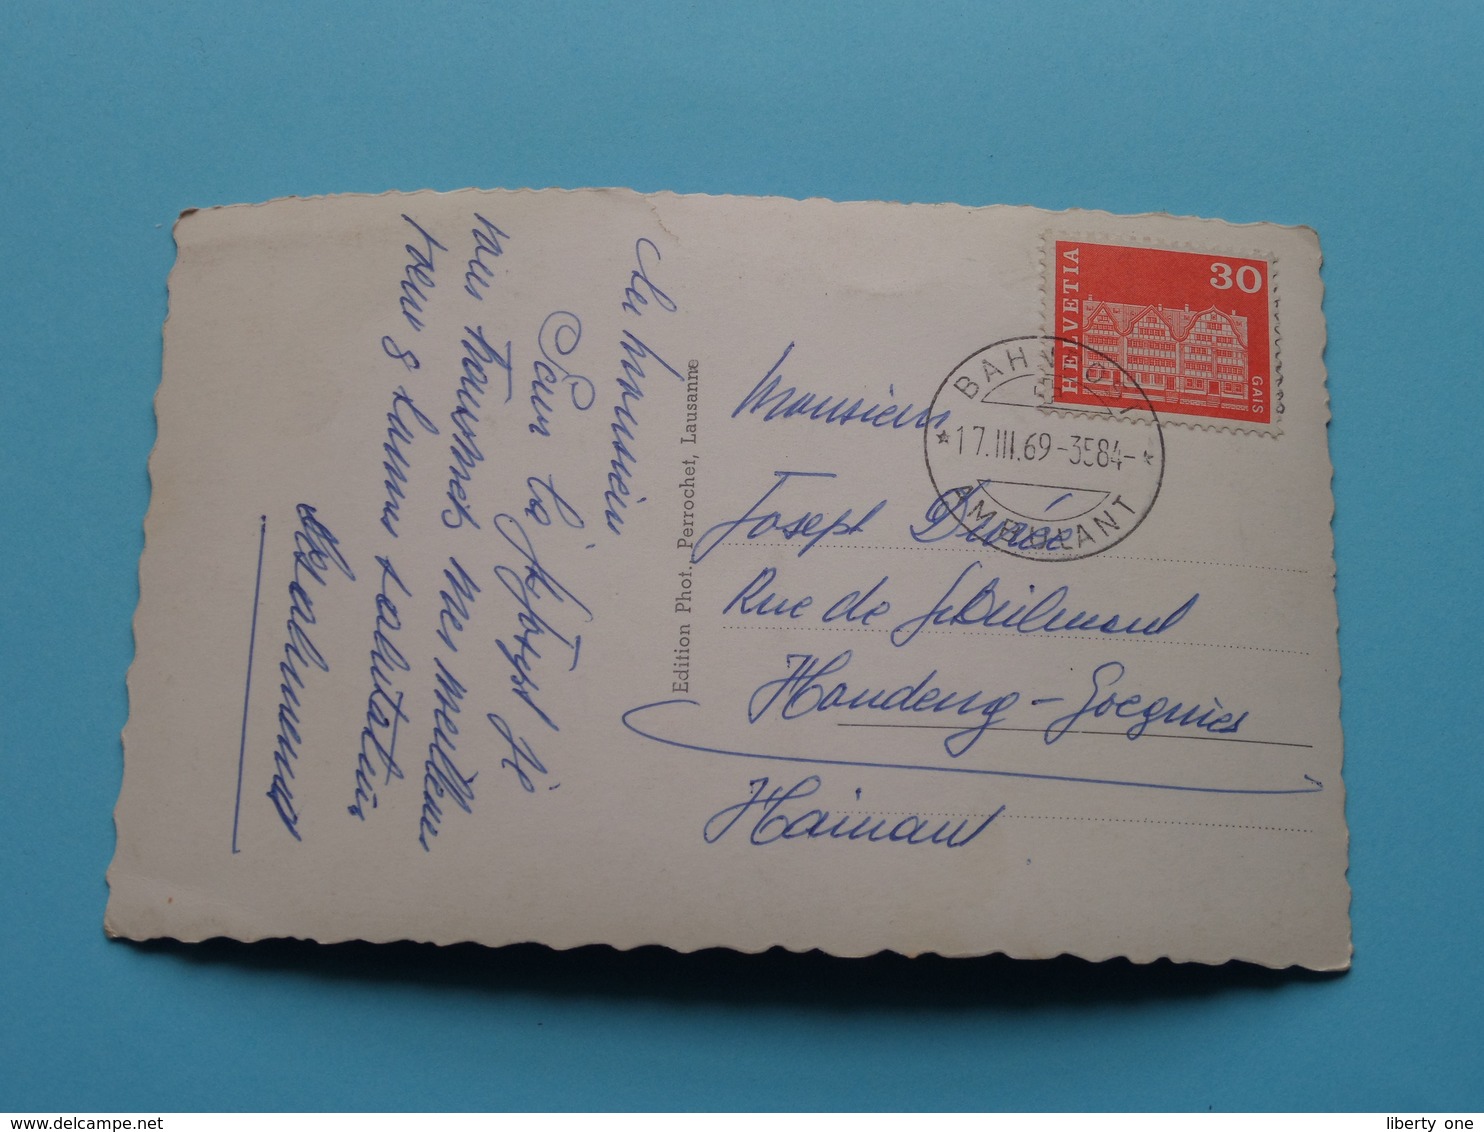 Cher monsieur
Pour la St Joseph je
vous transmets mes meilleurs
voeux & bonnes salutations
Edition Phot. Perrochet, Lausanne
HELVETIA
30
GAIS
BAHNPOST
17.III.69-3584-
AMBULANT
Monsieur
Joseph
Rue de
Houdeng-Goegnies
Hainaut
www.delcampe.net
liberty one